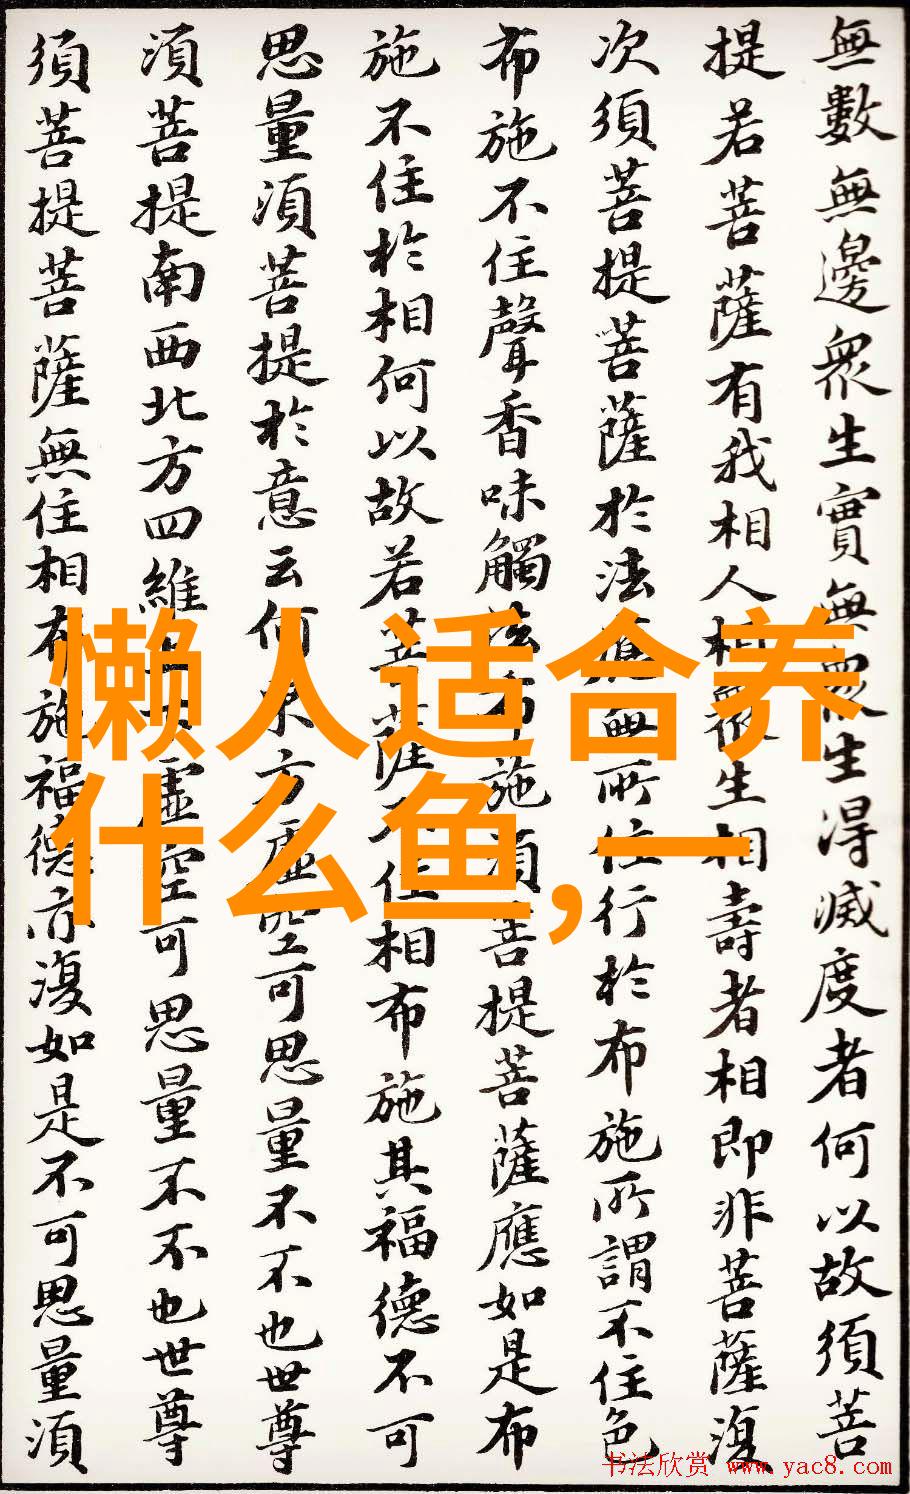 無數無邊眾生實無眾生得滅度者何以故須菩
提若菩薩有我相人相眾生相壽者相即非菩薩復
次須菩提菩薩於法應無所住行於布施所謂不住色
布施不住聲香味觸法布施須菩提菩薩應如是布
施不住於相何以故若菩薩不住相布施其福德不可
思量須菩提於意云何東方虛空可思量不不也世尊
須菩提南西北方四維上下虛空可思量不不也世尊
須菩提菩薩無住相布施福德亦復如是不可思量須
懒人适合养
什么鱼,一
书法欣赏 www.yac8.com